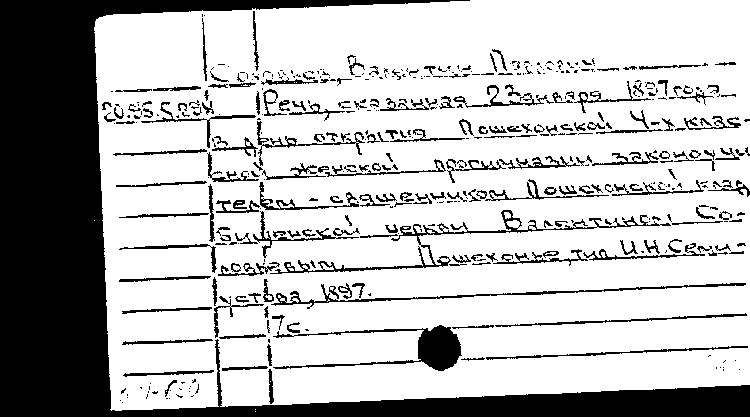 Соловьев, Валентин Павлович
Речь, сказанная 23 января 1897 года
в день открытия Пошехонской 4-х клас-
сной женской прогимназии законоучи
телем - священником Пошехонской клад
бищенской церкви Валентином Со-
ловьевым. Пошехонье, тип. И.Н. Семи-
устова, 1897.
7с.